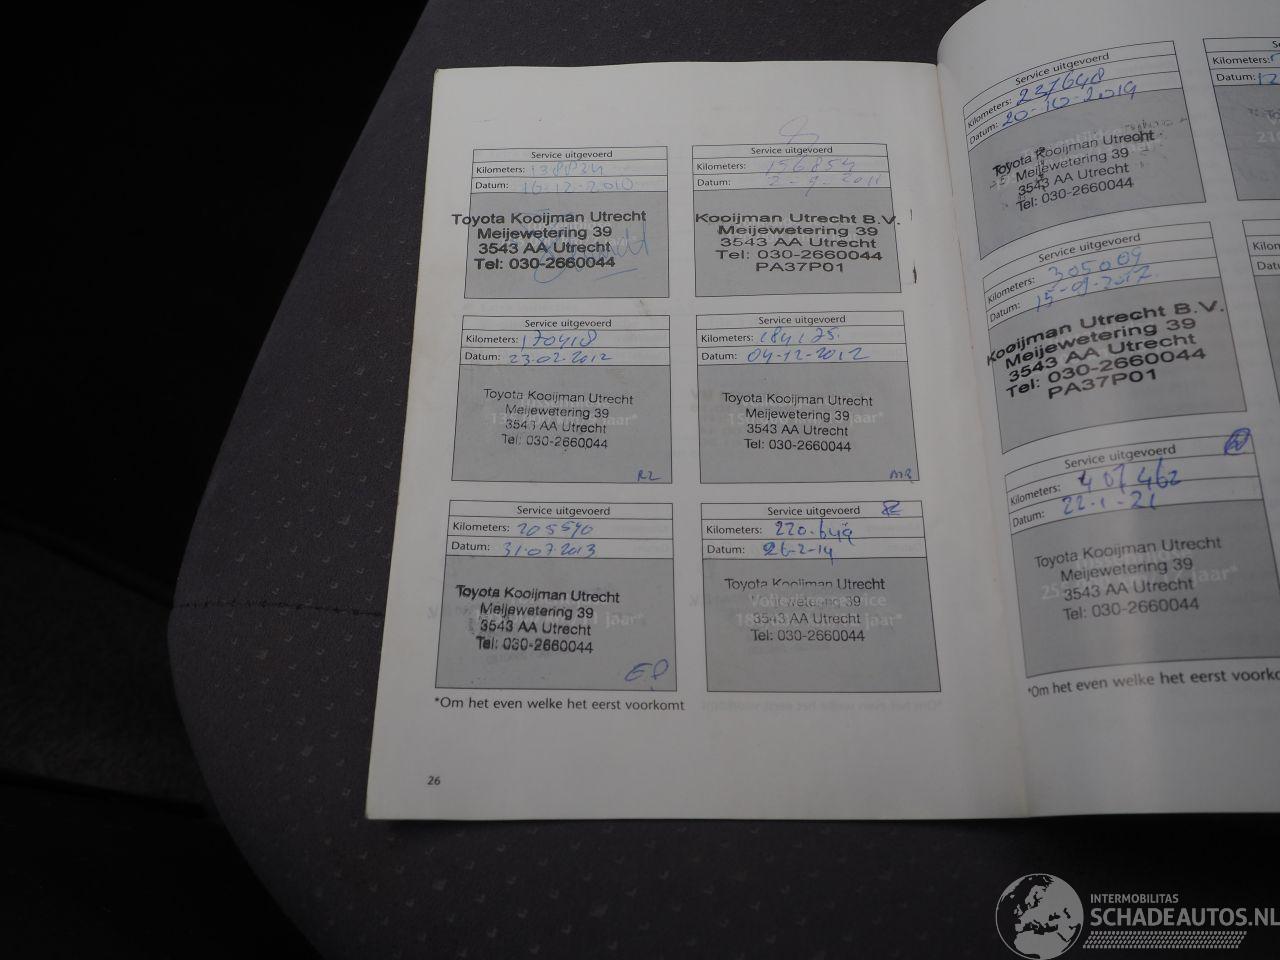 Service uitgevoerd
Kilometers: 138834
Datum: 16-12-2010
Toyota Kooijman Utrecht
Meijewetering 39
3543 AA Utrecht
Tel: 030-2660044
Service uitgevoerd
Kilometers: 156854
Datum: 2-9-2011
Kooijman Utrecht B.V.
Meijewetering 39
3543 AA Utrecht
Tel: 030-2660044
PA37P01
Service uitgevoerd
Kilometers: 170418
Datum: 23-02-2012
Toyota Kooijman Utrecht
Meijewetering 39
3543 AA Utrecht
Tel: 030-2660044
RZ
Service uitgevoerd
Kilometers: 184175
Datum: 04-12-2012
Toyota Kooijman Utrecht
Meijewetering 39
3543 AA Utrecht
Tel: 030-2660044
MR
Service uitgevoerd
Kilometers: 205590
Datum: 31-07-2013
Toyota Kooijman Utrecht
Meijewetering 39
3543 AA Utrecht
Tel: 030-2660044
Service uitgevoerd
Kilometers: 220.649
Datum: 26-2-14
Toyota Kooijman Utrecht
Meijewetering 39
3543 AA Utrecht
Tel: 030-2660044
*Om het even welke het eerst voorkomt
26
Service uitgevoerd
Kilometers: 227648
Datum: 20-10-2014
Toyota Kooijman Utrecht
Meijewetering 39
3543 AA Utrecht
Tel: 030-2660044
Service uitgevoerd
Kilometers: 305009
Datum: 15-09-2017
Kooijman Utrecht B.V.
Meijewetering 39
3543 AA Utrecht
Tel: 030-2660044
PA37P01
Service uitgevoerd
Kilometers: 407462
Datum: 22-1-21
Toyota Kooijman Utrecht
Meijewetering 39
3543 AA Utrecht
Tel: 030-2660044
*Om het even welke het eerst
Kilometers:
Datum:
INTERMOBILITAS
SCHADEAUTOS.NL